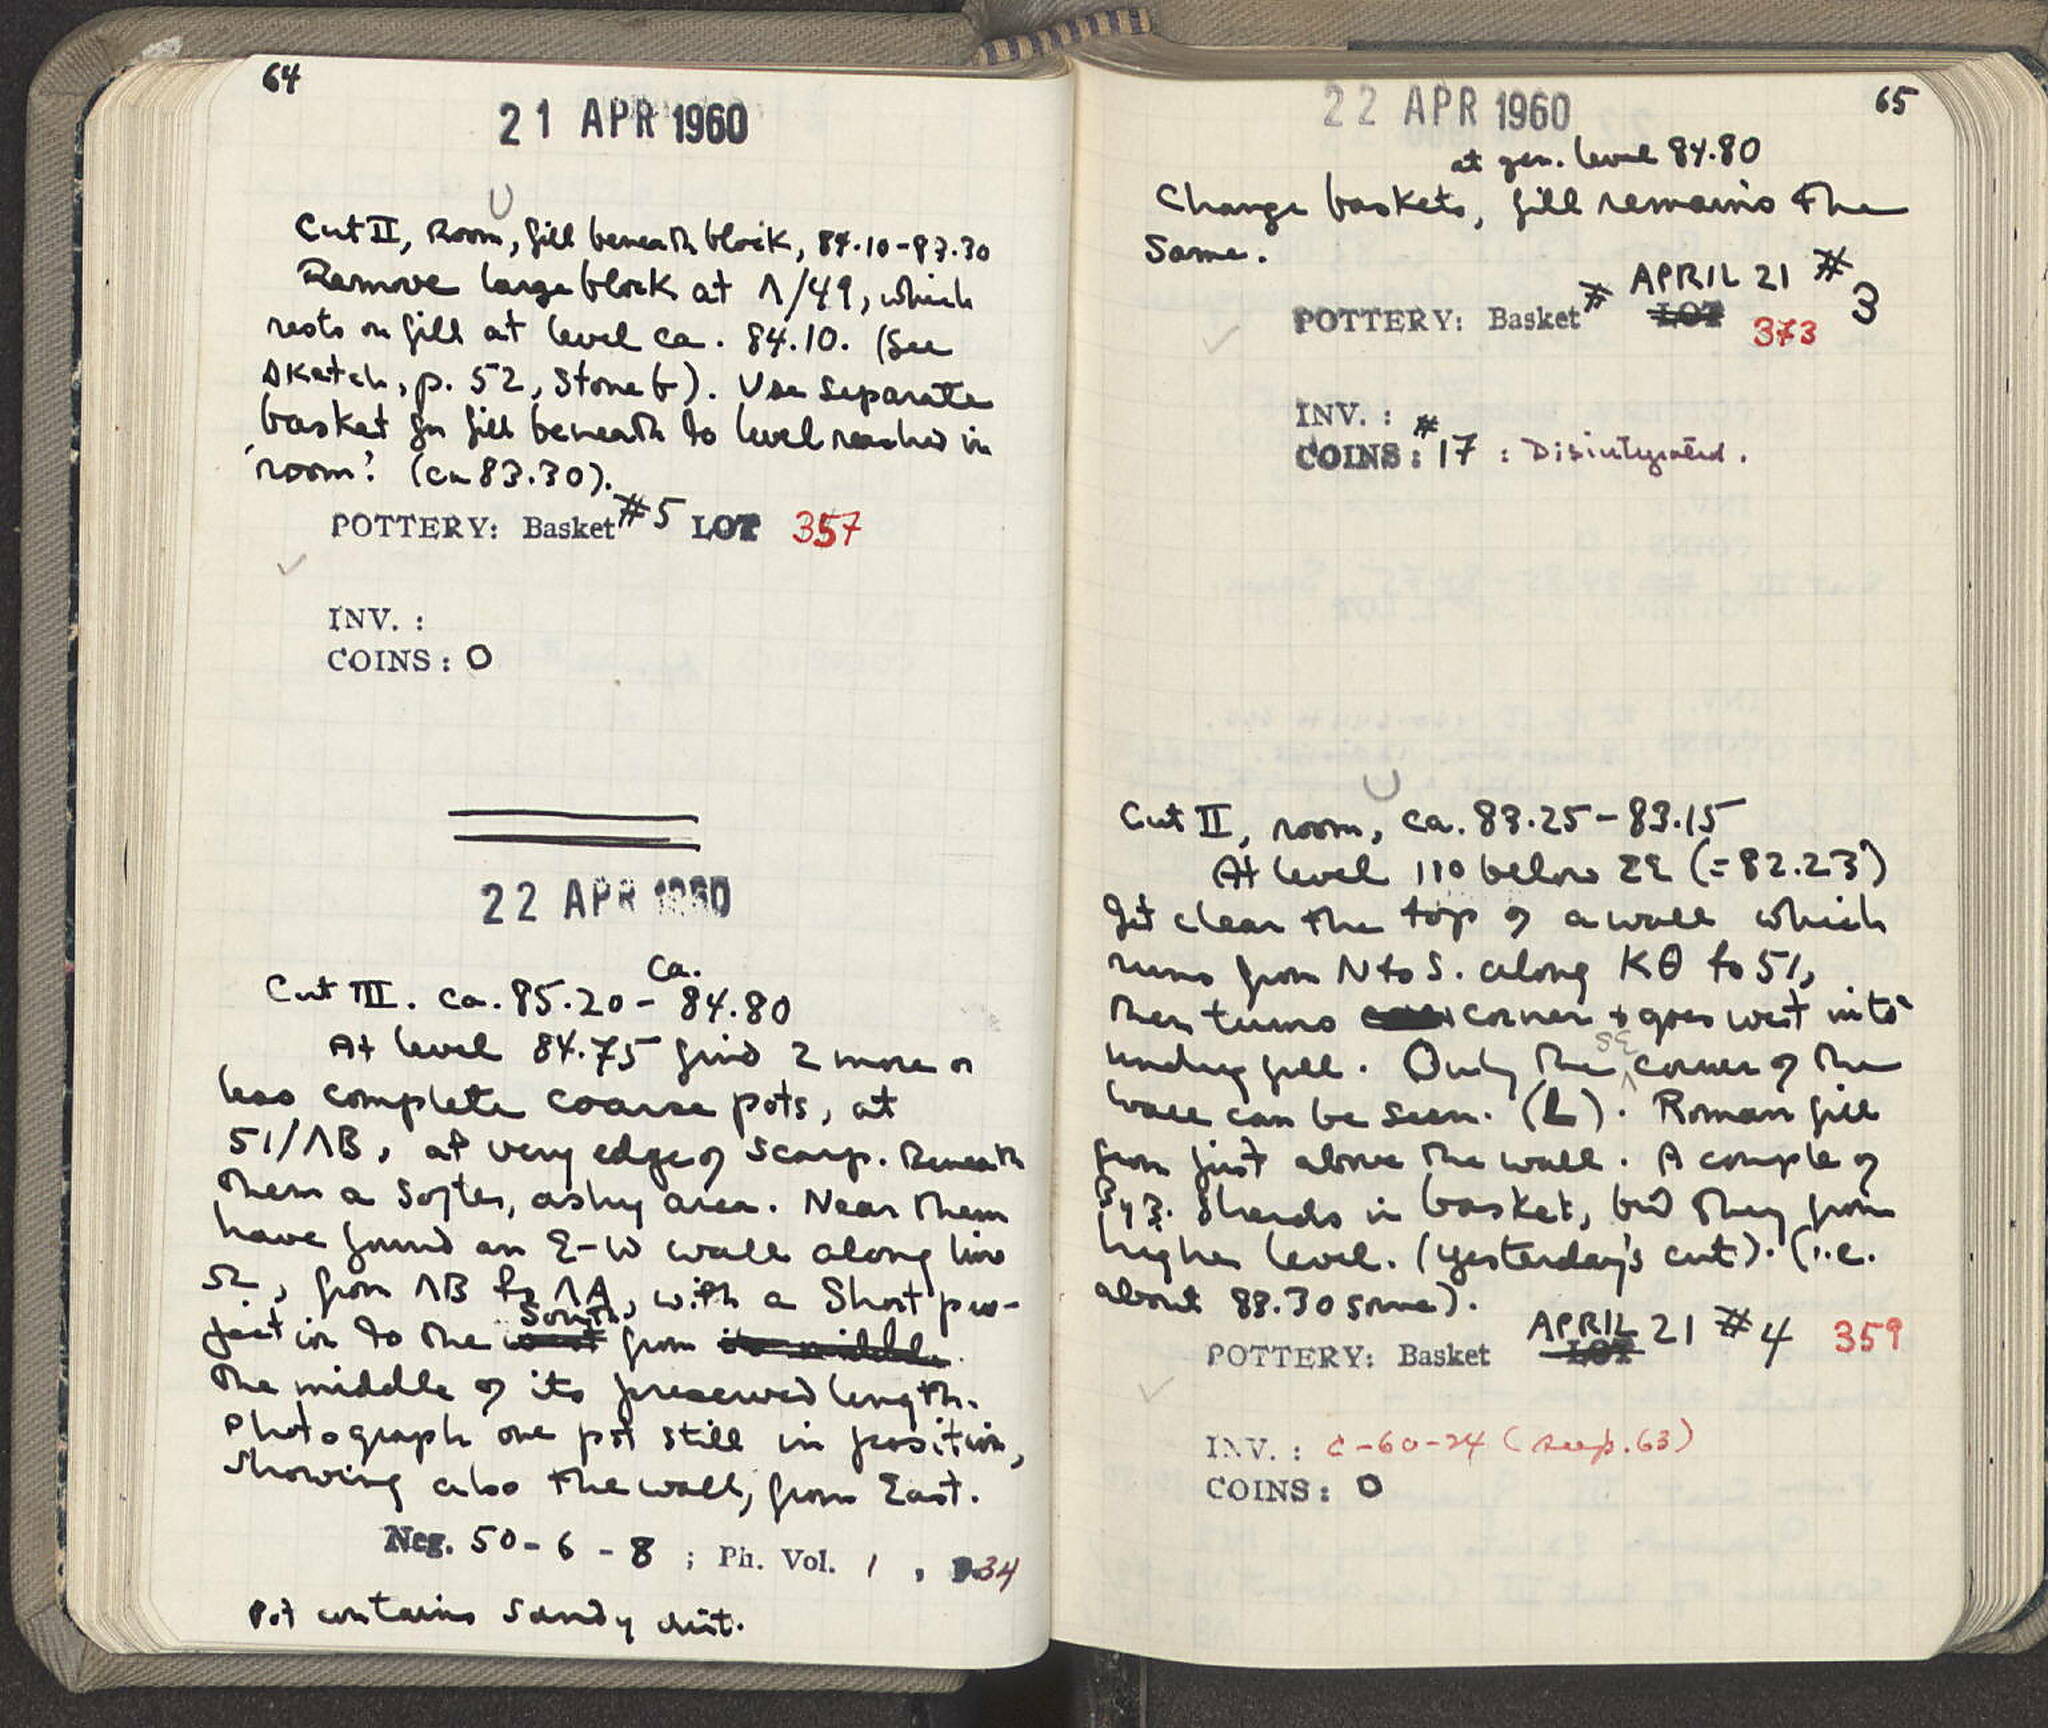 64
21 APR 1960
Cut II, Room, fill beneath block, 84.10-83.30
Remove large block at Λ/49, which
rests on fill at level ca. 84.10. (See
sketch, p. 52, stone b). Use separate
basket for fill beneath to level reached in
"room". (ca 83.30).
POTTERY: Basket #5 LOT 357
INV. :
COINS: 0
22 APR 1960
Cut III. ca. 85.20 - ca. 84.80
At level 84.75 find 2 more or
less complete coarse pots, at
51/ΛB, at very edge of scarp. Beneath
them a softer, ashy area. Near them
have found an E-W wall along line
52, from ΛB to ΛA, with a short pro-
jection to the west South from its middle
the middle of its preserved length.
Photograph one pot still in position,
showing also the wall, from East.
Neg. 50-6-8 ; Ph. Vol. 1 , p.34
Pot contains sandy dirt.
65
22 APR 1960
at gen. level 84.80
Change baskets, fill remains the
same.
POTTERY: Basket # LOT APRIL 21 #3
373
INV. :
COINS: #17 : Disintegrated.
Cut II, room, ca. 83.25-83.15
At level 110 below ΣΕ (=82.23)
get clear the top of a wall which
runs from N to S. along Kθ to 51,
then turns corner & goes west into
undug fill. Only the SE corner of the
wall can be seen. (L). Roman fill
from just above the wall. A couple of
Byz. sherds in basket, but they from
higher level. (yesterday's cut). (i.e.
about 83.30 some).
POTTERY: Basket LOT APRIL 21 #4 359
INV. : C-60-24 (see p. 63)
COINS: 0